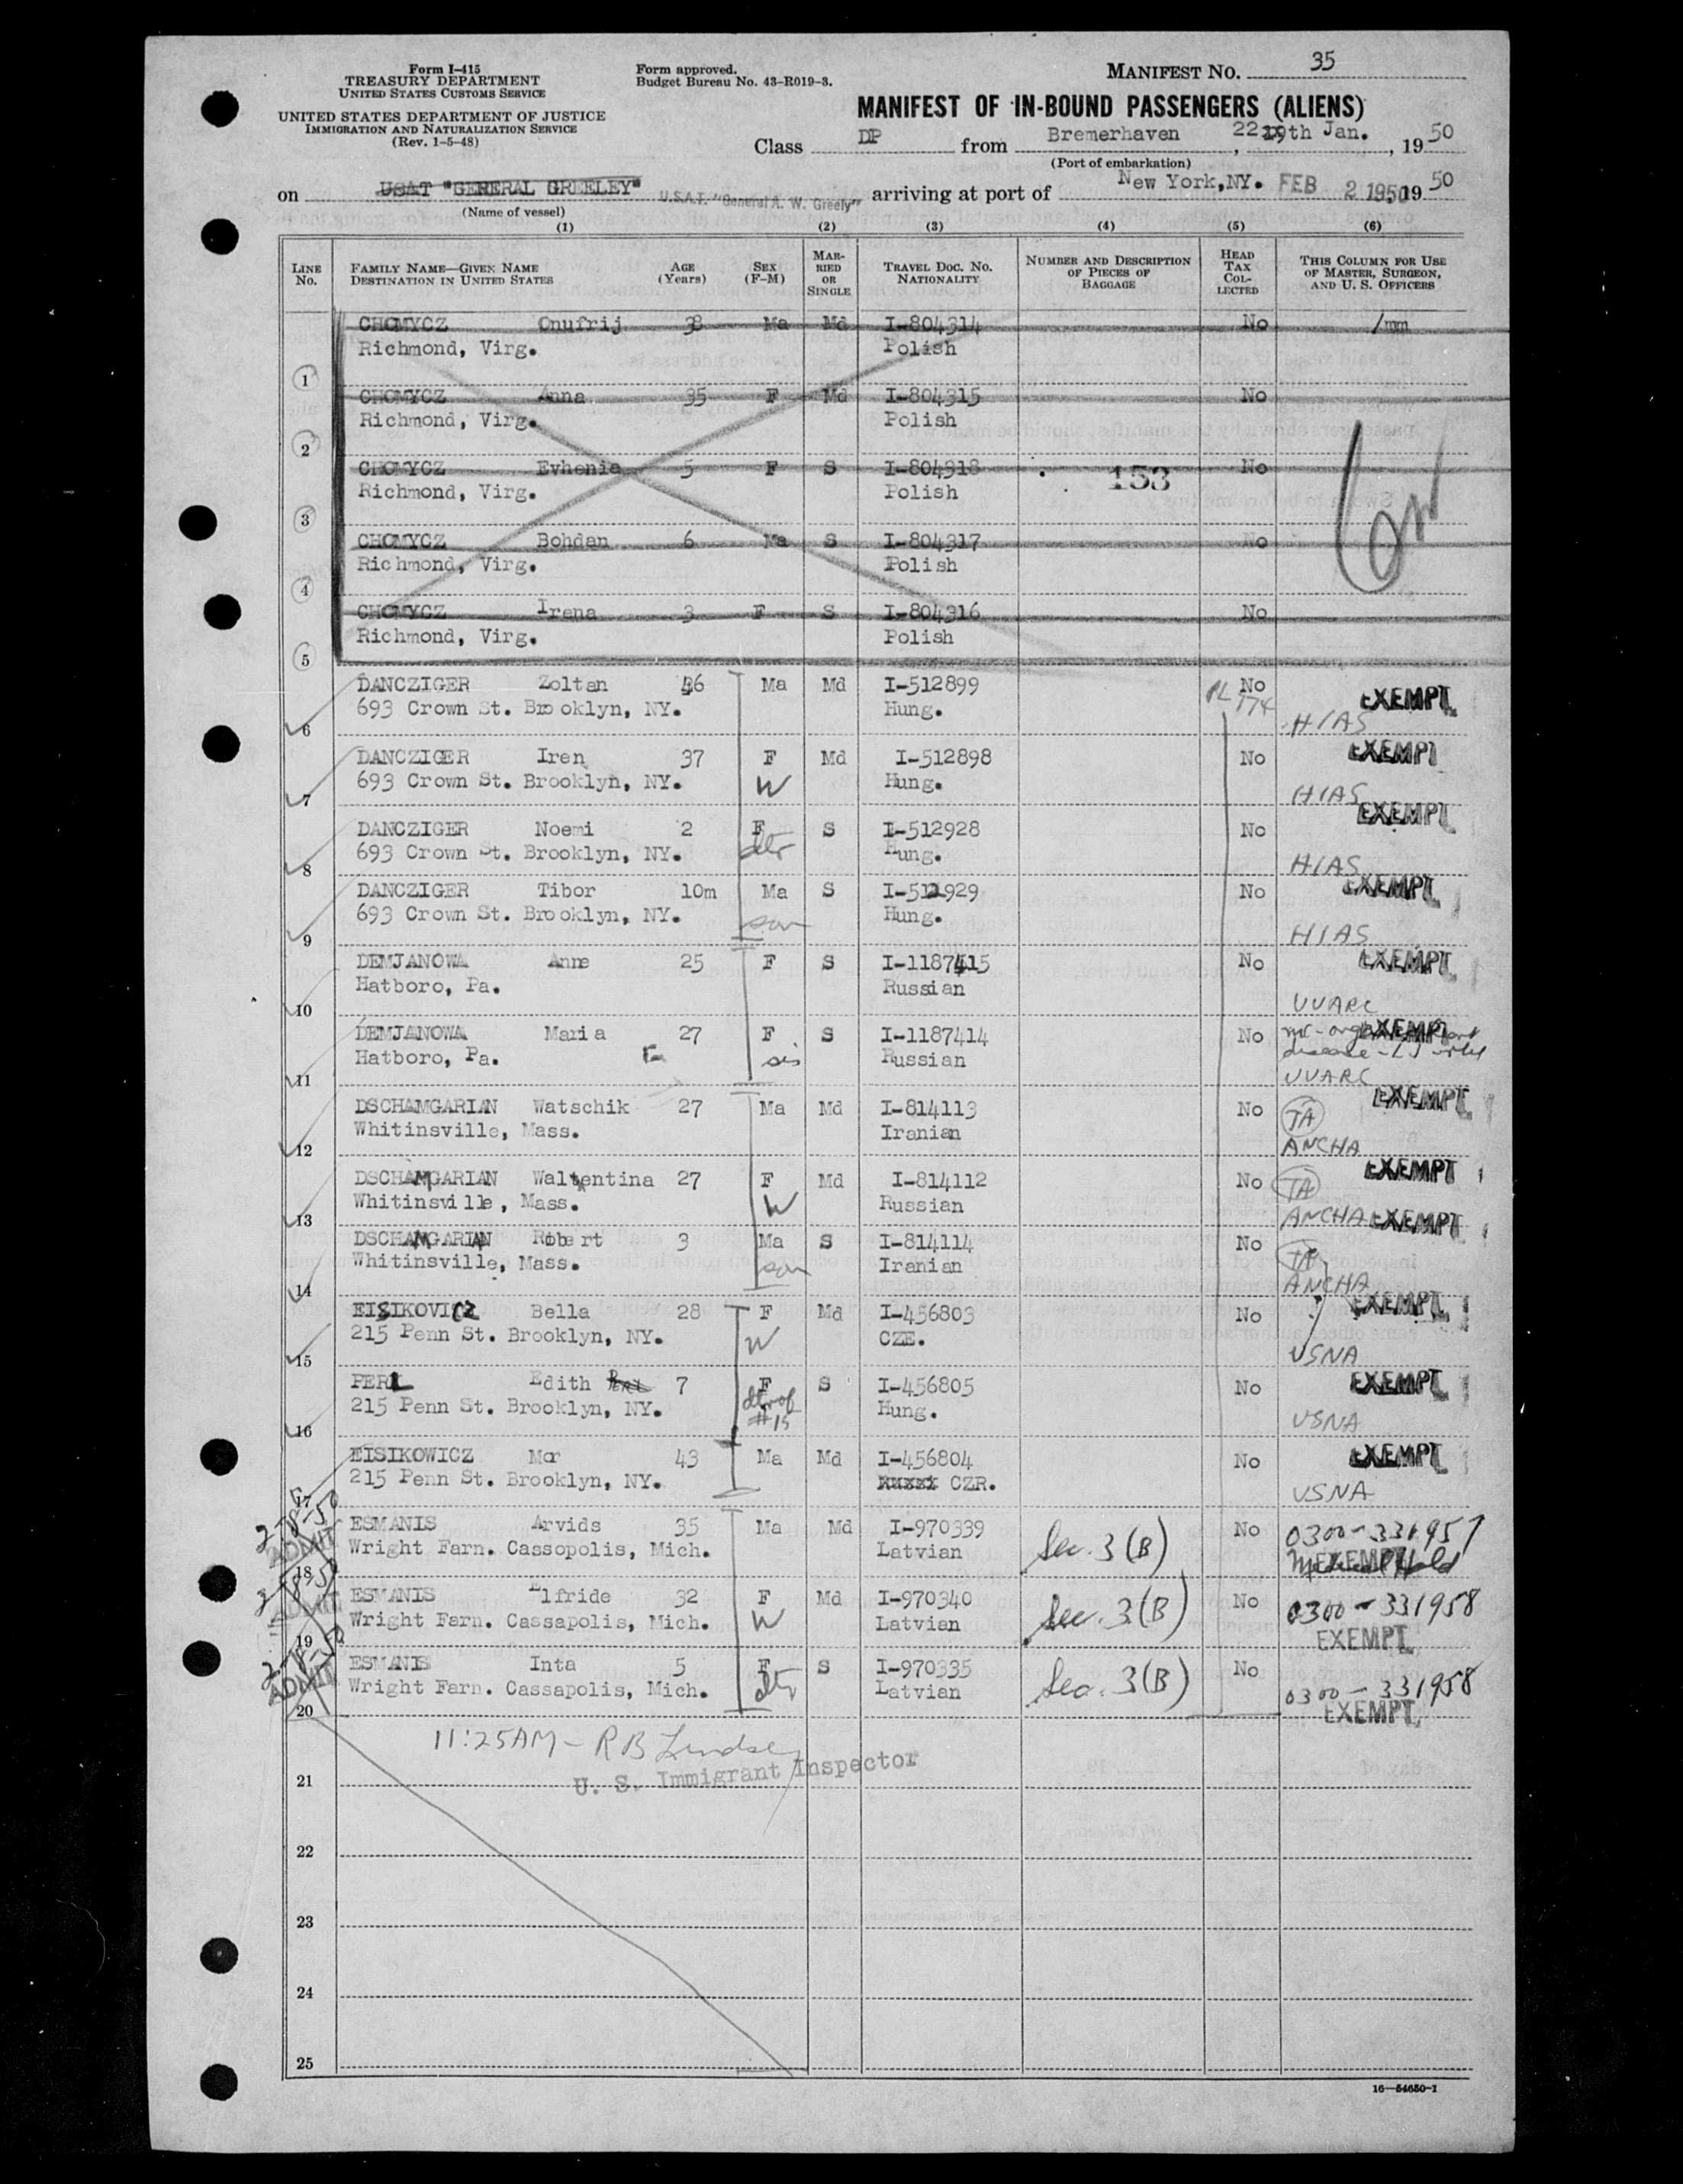 Form I-415
TREASURY DEPARTMENT
UNITED STATES CUSTOMS SERVICE
UNITED STATES DEPARTMENT OF JUSTICE
IMMIGRATION AND NATURALIZATION SERVICE
(Rev. 1-5-48)
Form approved.
Budget Bureau No. 43-R019-3.
MANIFEST NO. 35
MANIFEST OF IN-BOUND PASSENGERS (ALIENS)
Class DP from Bremerhaven, 22 Jan., 1950
(Port of embarkation)
on USAT "GENERAL GREELEY" U.S.A.T. "General A. W. Greely" arriving at port of New York, NY. FEB 2 1950 1950
(Name of vessel)
(1) (2) (3) (4) (5) (6)
LINE No. FAMILY NAME—GIVEN NAME DESTINATION IN UNITED STATES AGE (Years) SEX (F-M) MARRIED OR SINGLE TRAVEL DOC. NO. NATIONALITY NUMBER AND DESCRIPTION OF PIECES OF BAGGAGE HEAD TAX COLLECTED THIS COLUMN FOR USE OF MASTER, SURGEON, AND U. S. OFFICERS
CHOMYCZ Onufrij 38 Ma Md I-804314 No
Richmond, Virg. Polish
1
CHOMYCZ Anna 35 F Md I-804315 No
Richmond, Virg. Polish
2
CHOMYCZ Evhenia 5 F S I-804318 153 No
Richmond, Virg. Polish
3
CHOMYCZ Bohdan 6 Ma S I-804317 No
Richmond, Virg. Polish
4
CHOMYCZ Irena 3 F S I-804316 No
Richmond, Virg. Polish
5
DANCZIGER Zoltan 46 Ma Md I-512899 No EXEMPT
693 Crown St. Brooklyn, NY. Hung. PL 774 HIAS
6
DANCZIGER Iren 37 F Md I-512898 No EXEMPT
693 Crown St. Brooklyn, NY. W Hung. HIAS
7
DANCZIGER Noemi 2 F S I-512928 No EXEMPT
693 Crown St. Brooklyn, NY. dtr Hung. HIAS
8
DANCZIGER Tibor 10m Ma S I-512929 No EXEMPT
693 Crown St. Brooklyn, NY. son Hung. HIAS
9
DEMJANOWA Anna 25 F S I-1187415 No EXEMPT
Hatboro, Pa. Russian UUARC
10
DEMJANOWA Maria 27 F S I-1187414 No EXEMPT
Hatboro, Pa. sis Russian disease UUARC
11
DSCHAMGARIAN Watschik 27 Ma Md I-814113 No TA EXEMPT
Whitinsville, Mass. Iranian ANCHA
12
DSCHAMGARIAN Walentina 27 F Md I-814112 No TA EXEMPT
Whitinsville, Mass. W Russian ANCHA
13
DSCHAMGARIAN Robert 3 Ma S I-814114 No TA EXEMPT
Whitinsville, Mass. son Iranian ANCHA
14
EISIKOVICZ Bella 28 F Md I-456803 No EXEMPT
215 Penn St. Brooklyn, NY. W CZE. USNA
15
PERL Edith 7 F S I-456805 No EXEMPT
215 Penn St. Brooklyn, NY. dtr of #15 Hung. USNA
16
EISIKOWICZ Mor 43 Ma Md I-456804 No EXEMPT
215 Penn St. Brooklyn, NY. CZR. USNA
17
2-8-50 ADMIT
ESMANIS Arvids 35 Ma Md I-970339 Sec. 3(B) No 0300-331957
Wright Farn. Cassopolis, Mich. Latvian Medical Hold EXEMPT
18
2-8-50 ADMIT
ESMANIS Elfride 32 F Md I-970340 Sec. 3(B) No 0300-331958
Wright Farn. Cassapolis, Mich. W Latvian EXEMPT
19
2-8-50 ADMIT
ESMANIS Inta 5 F S I-970335 Sec. 3(B) No 0300-331958
Wright Farn. Cassapolis, Mich. dtr Latvian EXEMPT
20
11:25AM - R B Lindsey
U. S. Immigrant Inspector
21
22
23
24
25
16—54650-1